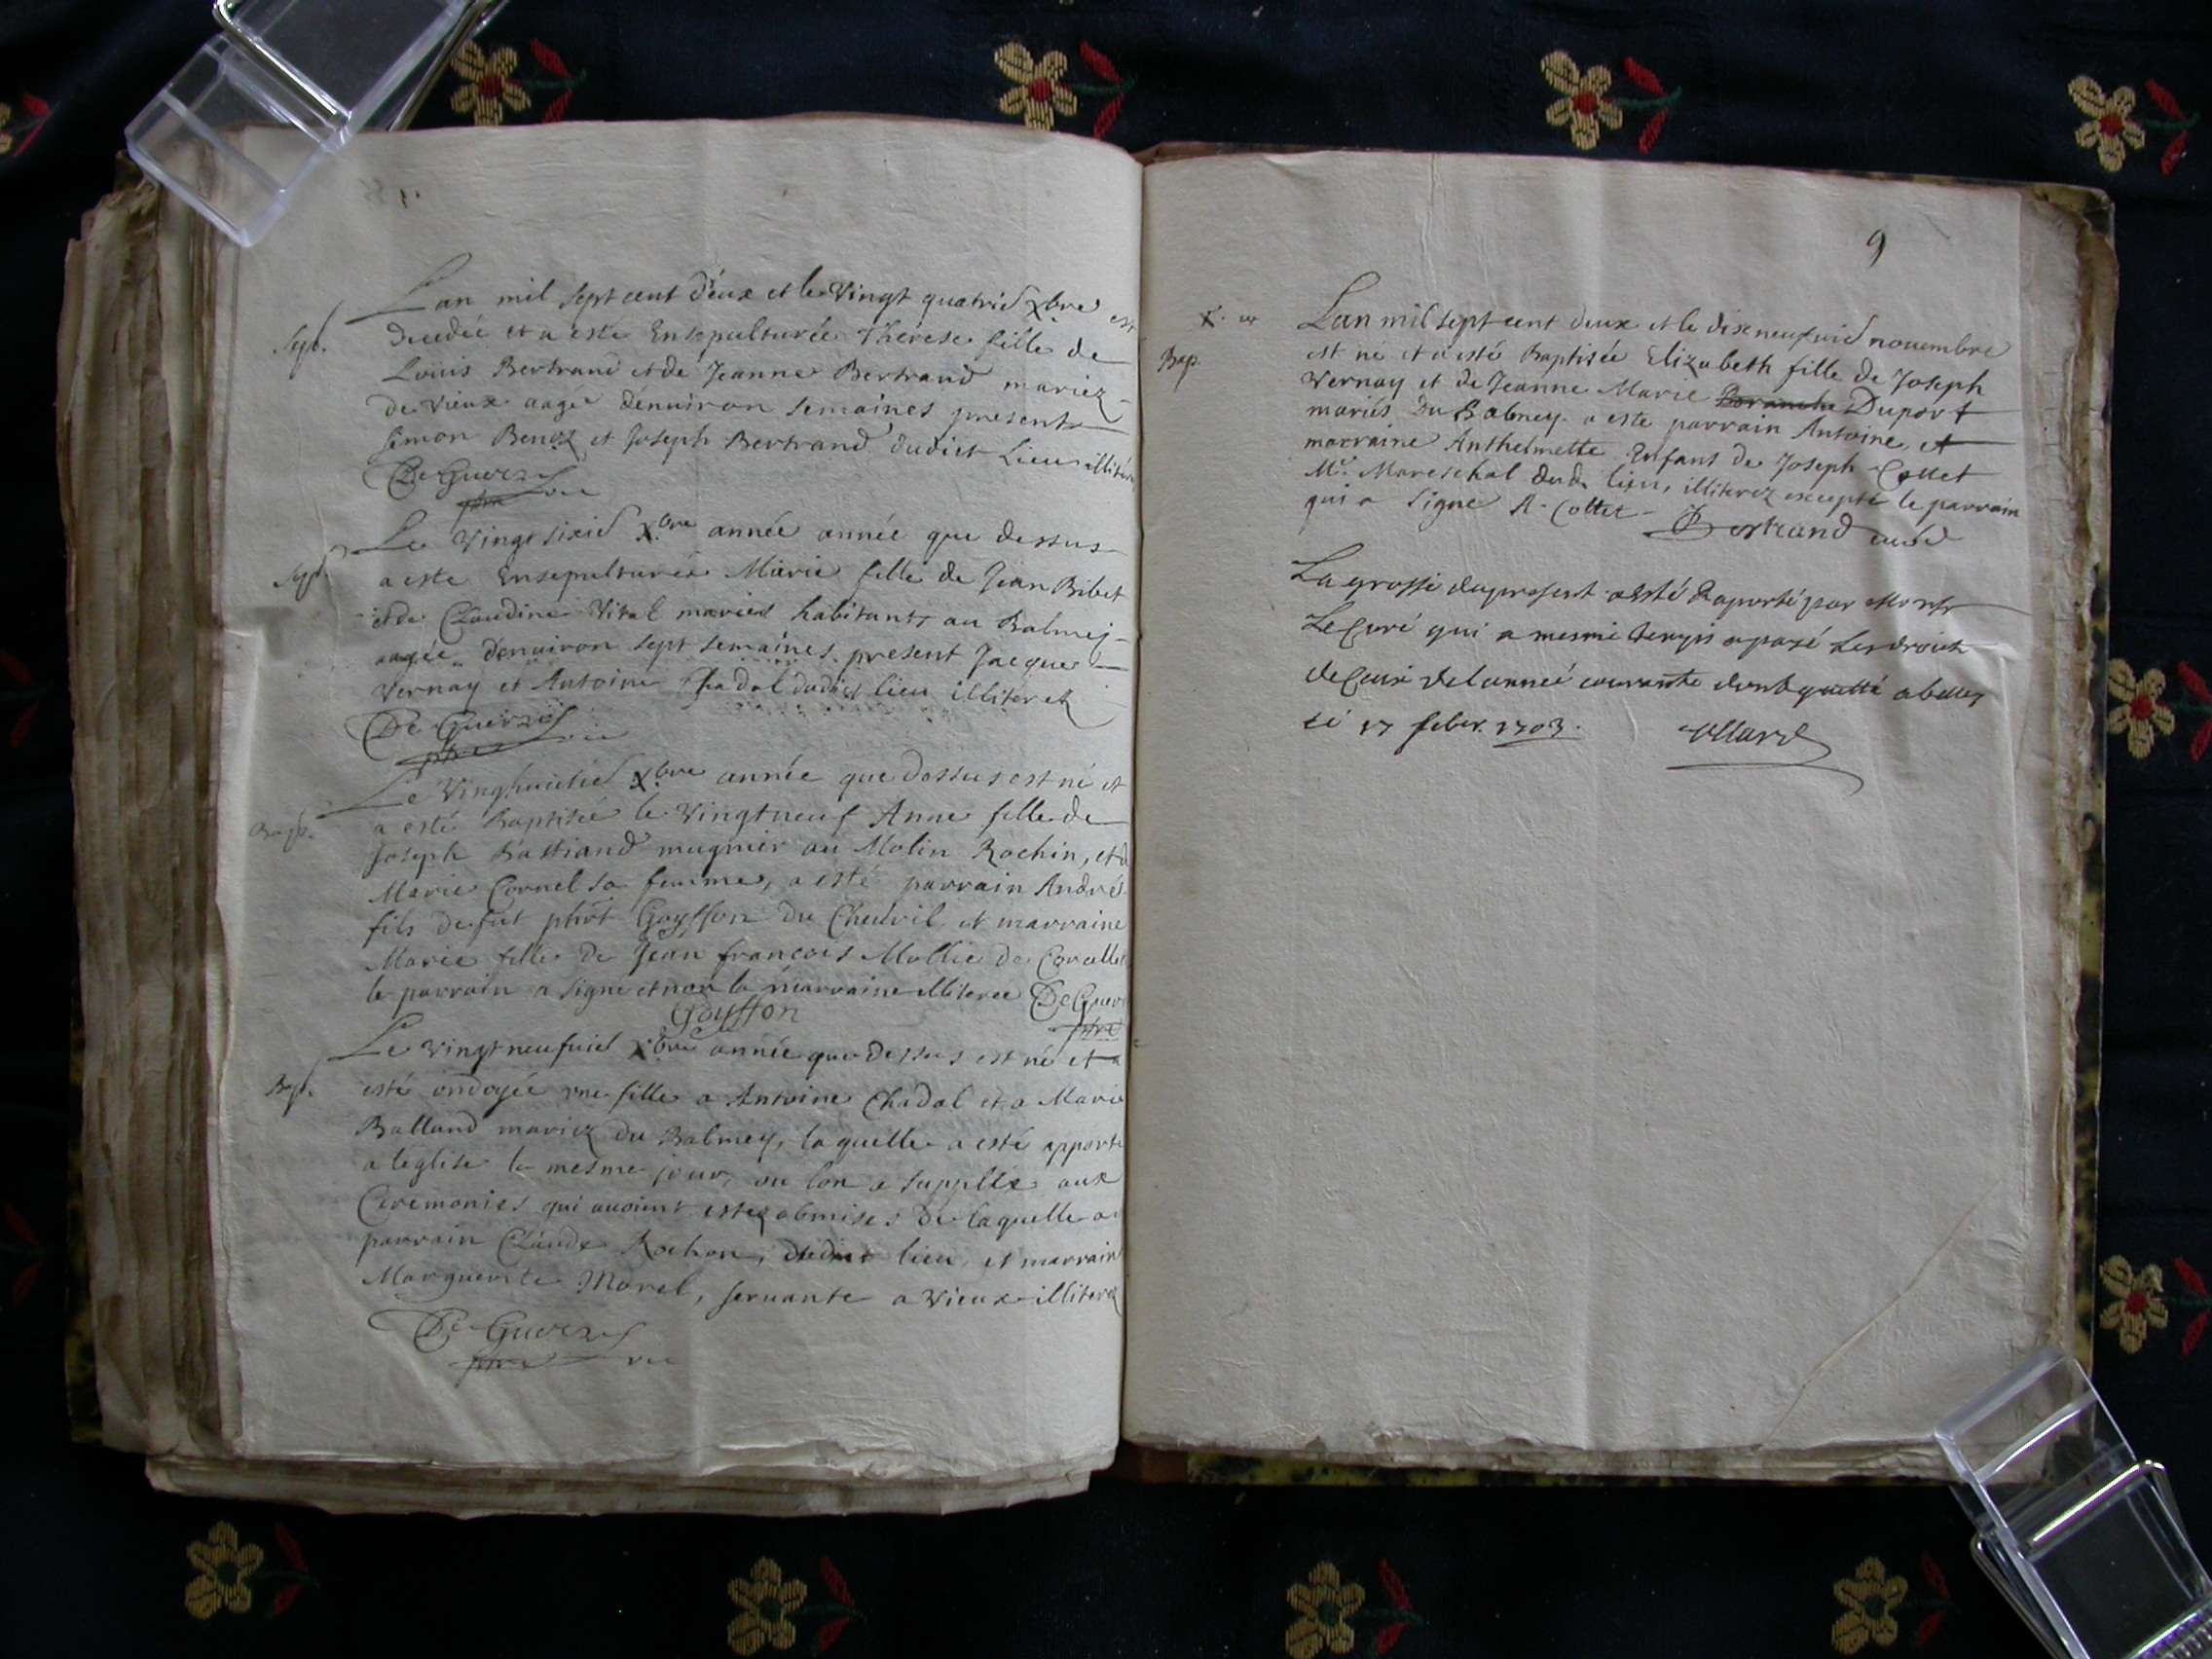 Lan mil sept cent deux et le Vingt quatrie xbre est
Sept.
decedée et a esté Ensepulturée Thérese fille de
Loüis Bertrand et de Jeanne Bertrand mariez
de Vieux aagée dénuiron semaines presents
Simon Benoz et Joseph Bertrand dudict Lieu illiter
De Guerz
ptre vic
Le Vingt sixie xbre année année que dessus
Sept.
a esté Ensepulturée Marie fille de Jean Bibet
et de Claudine Vital maries habitants au Balmey
aagée dénuiron sept semaines present Jacque
Vernay et Antoine Chadal dudict lieu illiterez
De Guerz
ptre vic
Le Vinghuictie xbre année que dessus est né et
Bapt.
a esté Baptisée le Vingtneuf Anne fille de
Joseph Bastiand mugnier au Molin Rochin, et d
Marie Cornel sa femme, a esté parrain André
fils de fut phrt Goysson du Cheuril et marraine
Marie fille de Jean françois Mollie de Corcelle
le parrain a signé et non la marraine illiteree De Guer
Goysson
ptre
Le Vingt neufuie xbre année que dessus est né et a
Bap.
esté ondoyée vne fille a Antoine Chadal et a Marie
Balland mariez du Balmey, laquelle a esté apporte
a leglise le mesme jour, ou lon a supplée aux
Ceremonies qui auoient estez obmises de laquelle a
parrain Claude Rochon, dudict lieu, et marrain
Marguerite Morel, seruante a Vieux illiterez
De Guerz
ptre vic
9
Lan mil sept cent deux et le dixneufuie nouembre
Bap.
est né et a esté Baptisée Elizabeth fille de Joseph
Vernay et de Jeanne Marie Duport
mariés du Balmey. a esté parrain Antoine, et
marraine Anthelmette Enfant de Joseph Collet
Me. Mareschal dud. lieu, illiterez excepté le parrain
qui a signé A. Collet
Bertrand curé
La grosse du present a esté Raporté par Monsr
Le Curé qui a mesme temps a payé Les droicts
de Ceux de lanneé courante dont quitté a belley
ce 17 feber. 1703.